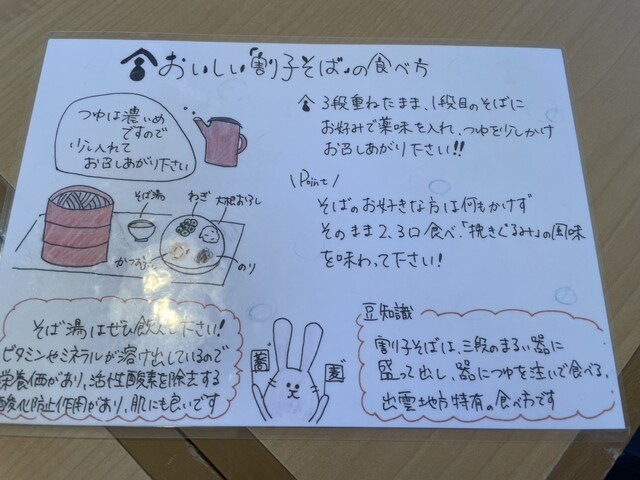 おいしい「割子そば」の食べ方
つゆは濃いめ
ですので
少し入れて
お召しあがり下さい
3段重ねたまま、1段目のそばに
お好みで薬味を入れ、つゆを少しかけ
お召しあがり下さい!!
\Point/
そばのお好きな方は何もかけず
そのまま2、3口食べ、「挽きぐるみ」の風味
を味わって下さい!
そば湯
ねぎ
大根おろし
かつお
のり
そば湯はぜひ飲んで下さい!
ビタミンやミネラルが溶け出しているので
栄養価があり、活性酸素を除去する
酸化防止作用があり、肌にも良いです
蕎
麦
豆知識
割子そばは、三段のまるい器に
盛って出し、器につゆを注いで食べる、
出雲地方特有の食べ方です